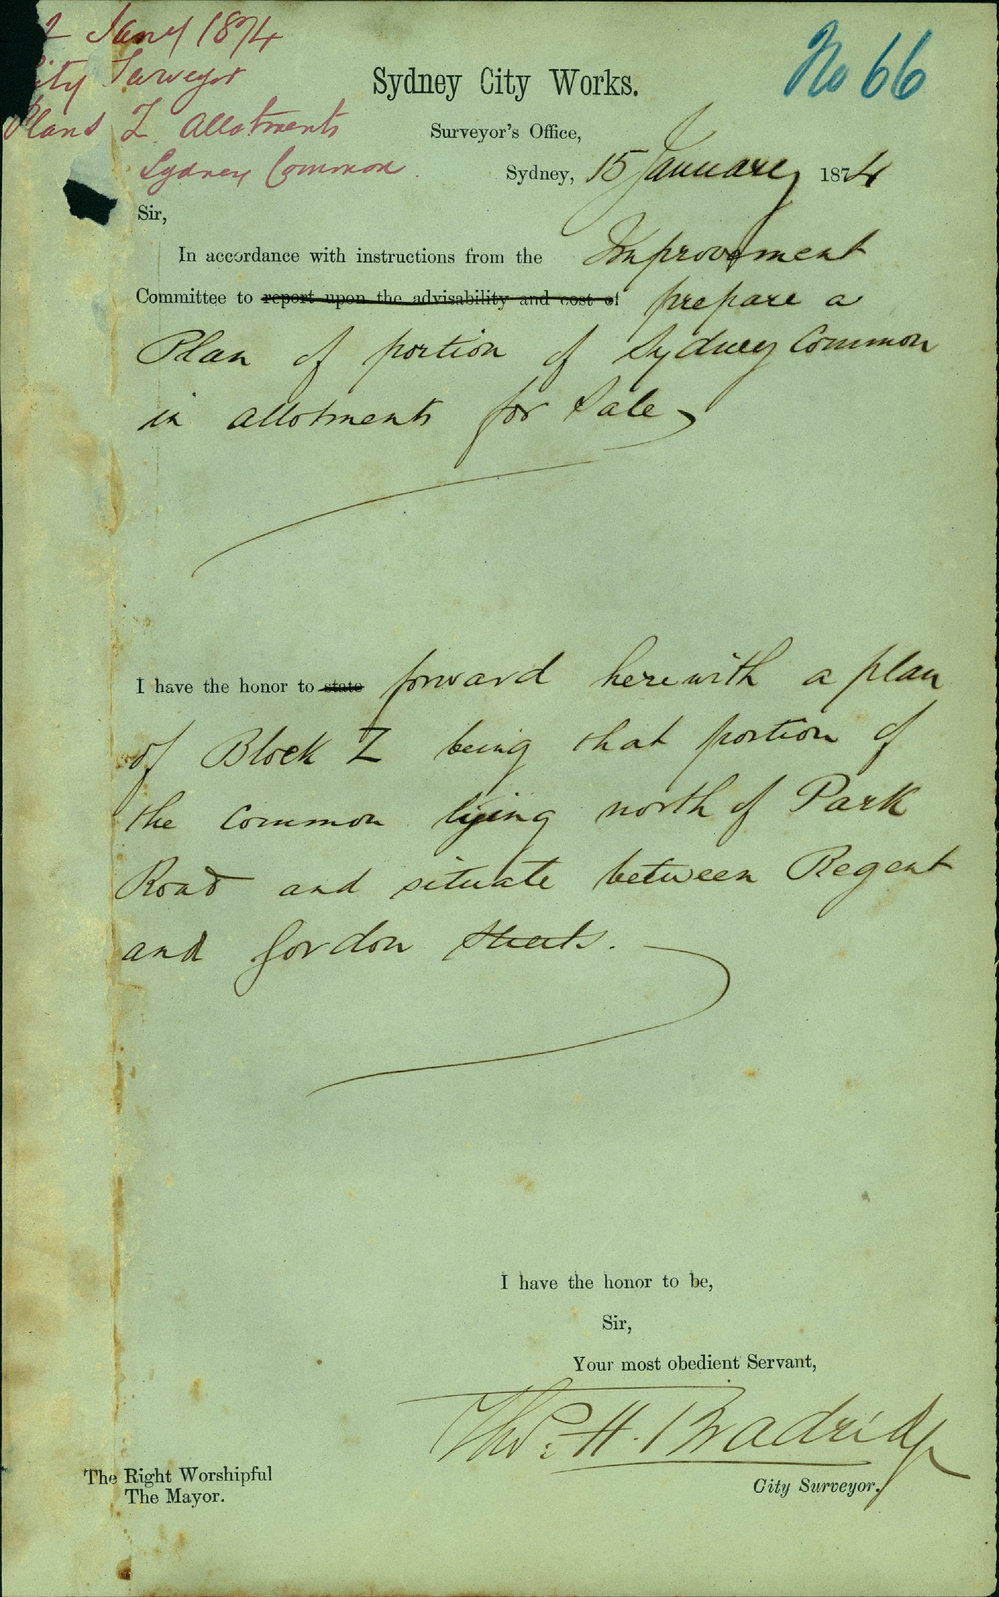 2 Jany 1874
City Surveyor
Plans Z Allotments
Sydney Common
No 66
Sydney City Works.
Surveyor's Office,
Sydney, 15 January 1874
Sir,
In accordance with instructions from the Improvement
Committee to report upon the advisability and cost of prepare a
Plan of portion of Sydney Common
in allotments for Sale
I have the honor to state forward herewith a plan
of Block Z being that portion of
the Common lying north of Park
Road and situate between Regent
and Gordon Streets.
I have the honor to be,
Sir,
Your most obedient Servant,
Thos. H. Bradridge
City Surveyor.
The Right Worshipful
The Mayor.